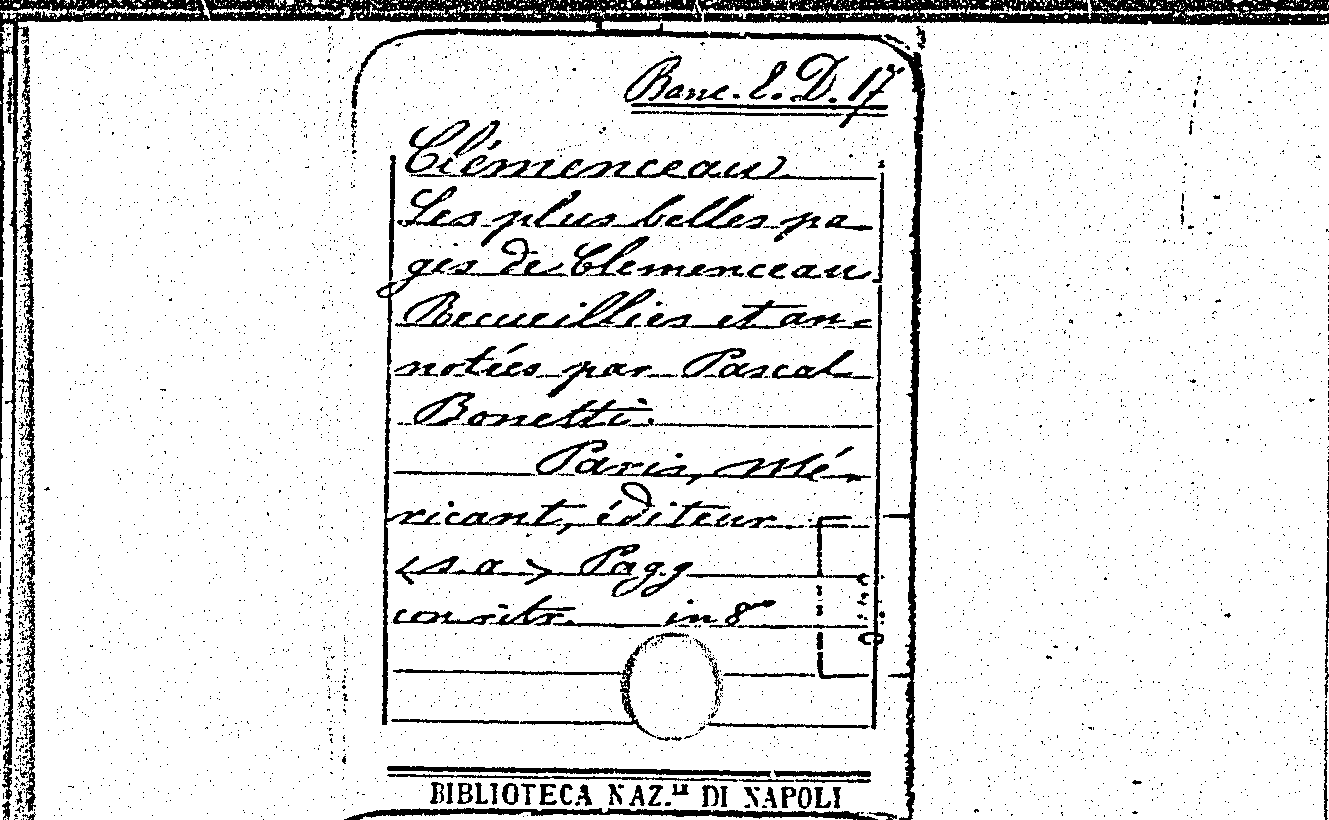 Banc. E. D. 17
Clémenceau
Les plus belles pa-
ges de Clemenceau
Recueillies et an-
notées par Pascal
Bonetti.
Paris, Mé-
ricant, éditeur
<s. a.> Pagg
con ritr. in 8°
BIBLIOTECA NAZ.LE DI NAPOLI